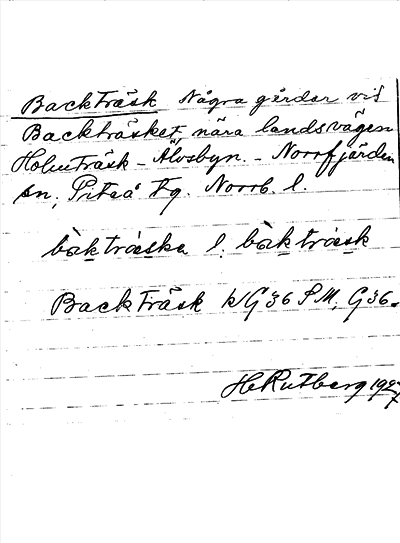 Backträsk Några gårdar vid
Backträsket nära landsvägen
Holmträsk - Älvsbyn. - Norrfjärden
sn, Piteå tg. Norrb. l.
bàkträska l. bàkträsk
Backträsk k/G36 SM, G36.
H Rutberg 1927